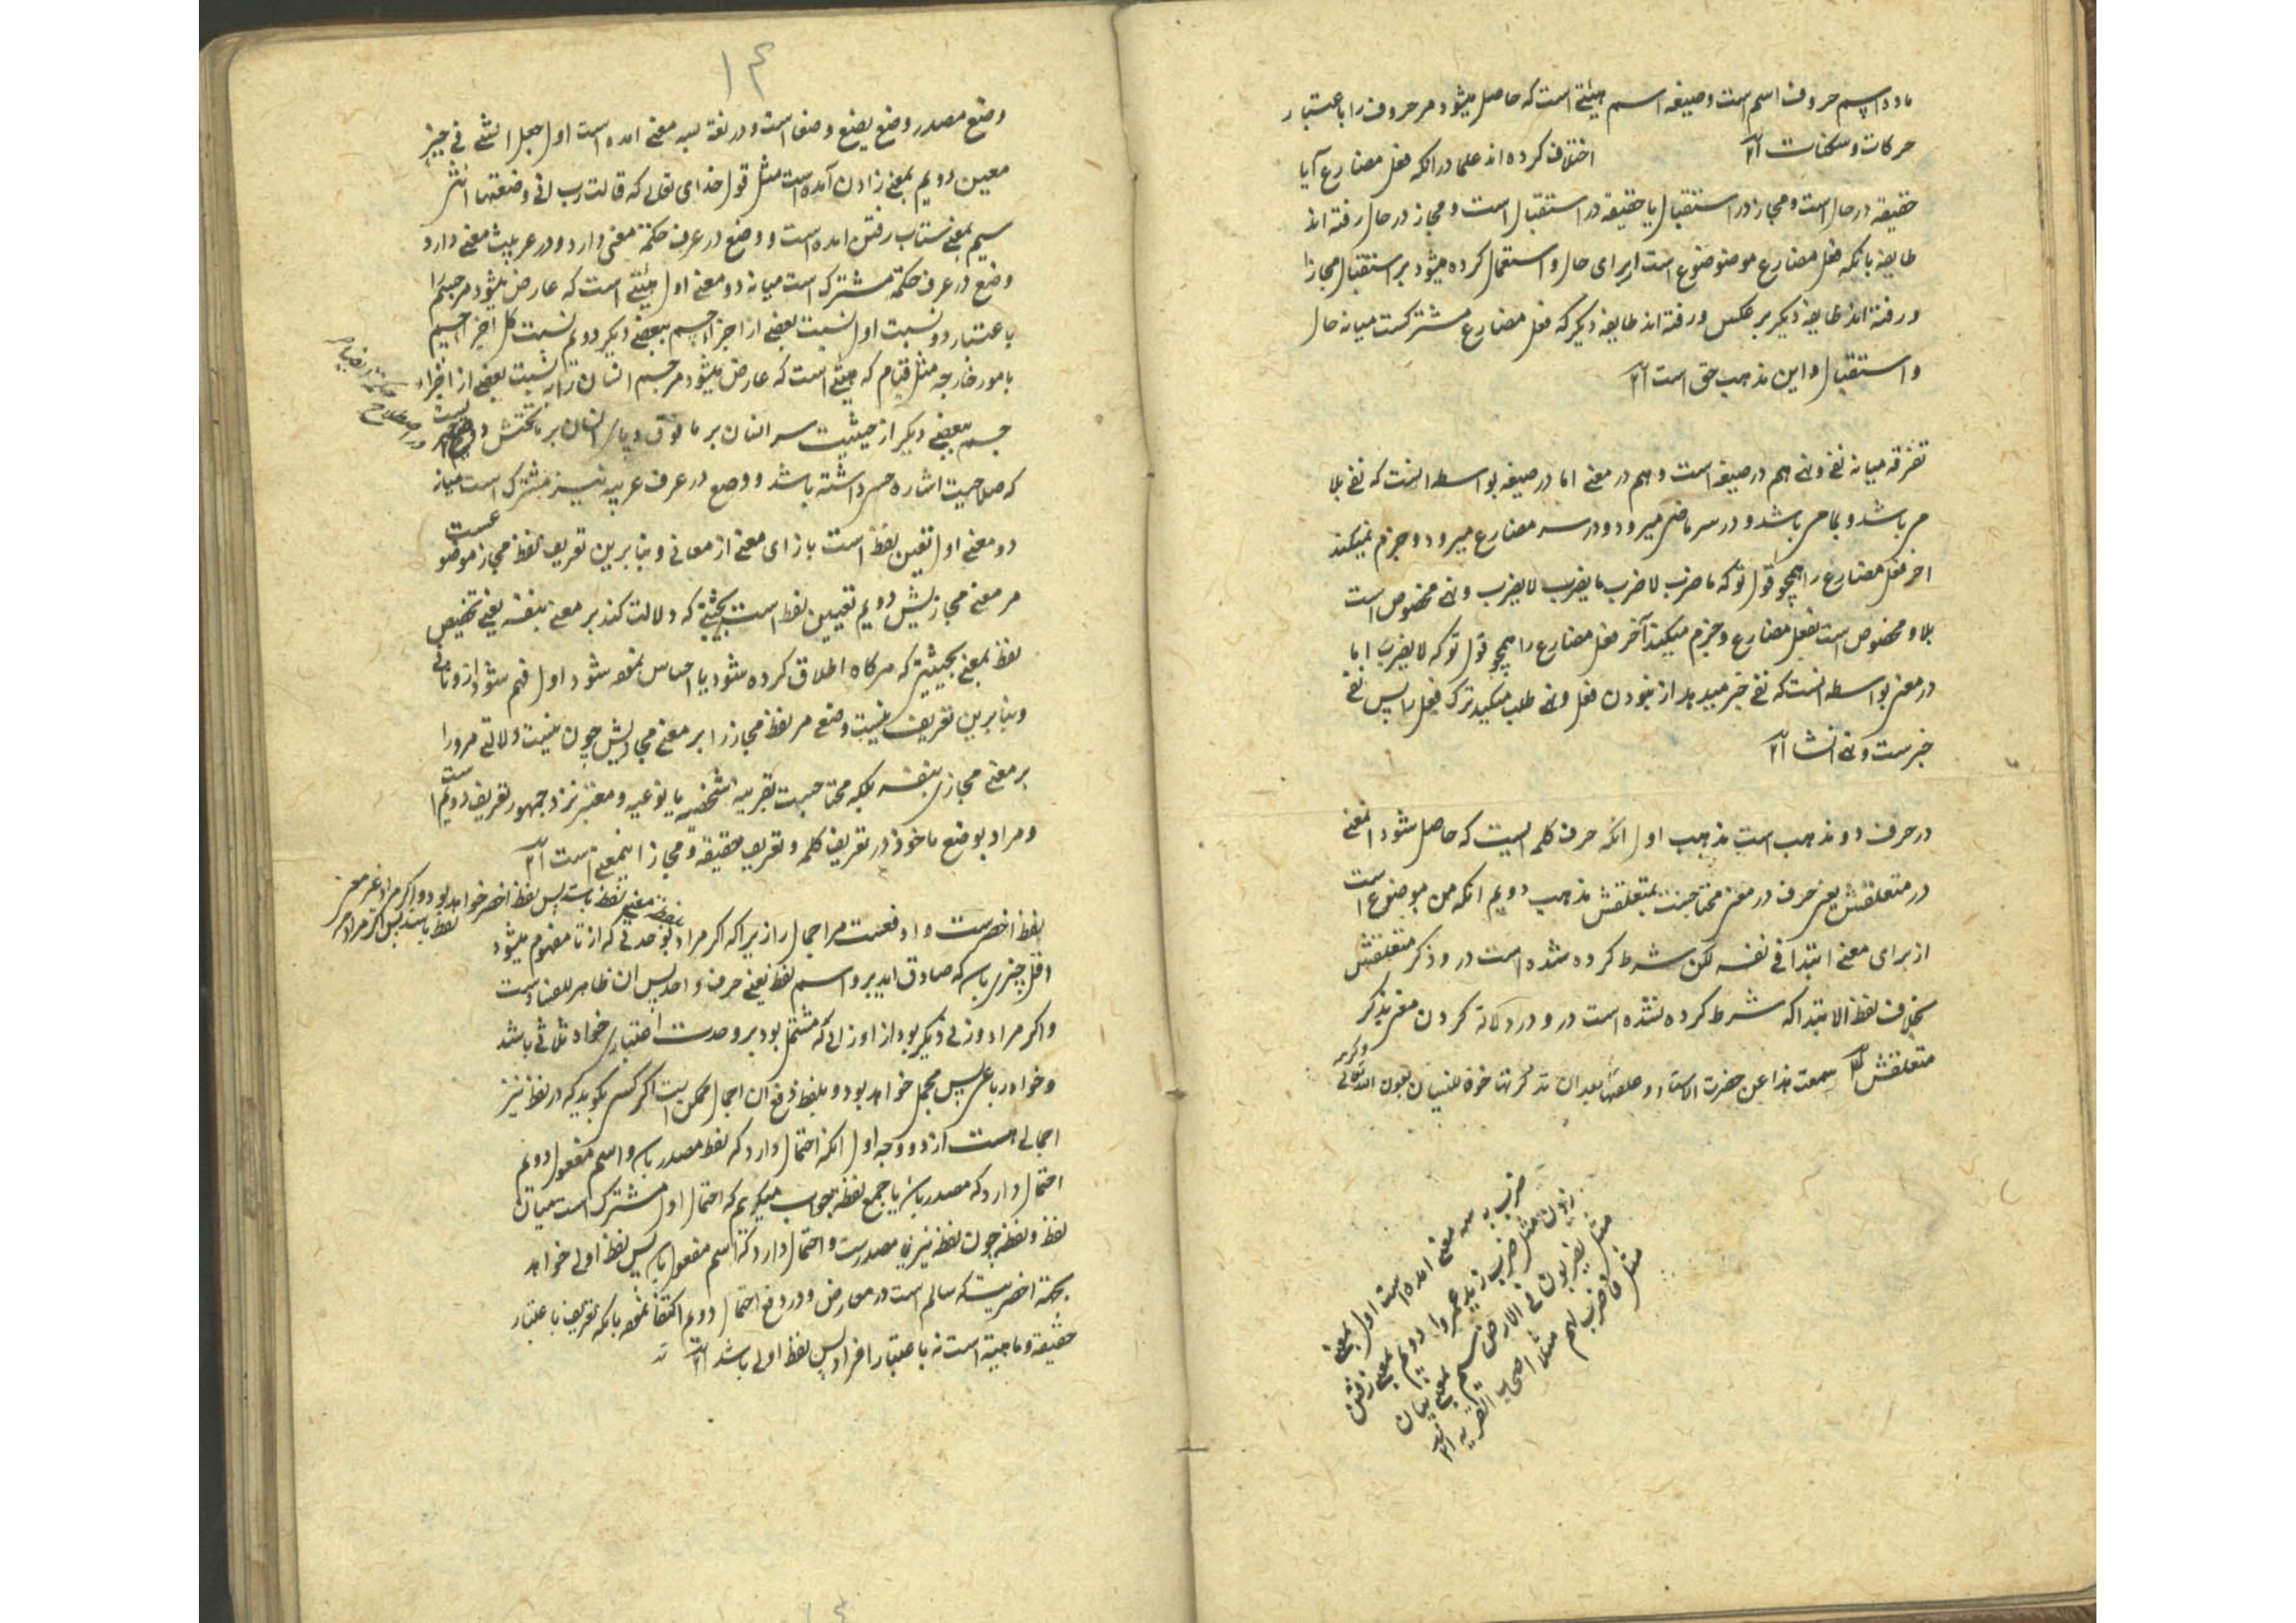 ماده اسم حروف اسم است وصیغه اسم هیئتی است که حاصل میشود مر حروف را باعتبار
حرکات وسکنات
اختلاف کرده اند علما در انکه فعل مضارع آیا
حقیقة در حال است ومجاز در استقبال یا حقیقة در استقبال است ومجاز در حال رفته اند
طایفه بانکه فعل مضارع موضوع است ازبرای حال واستعمال کرده میشود بر استقبال مجازا
ورفته اند طایفه دیگر بر عکس ورفته اند طایفه دیگر که فعل مضارع مشترکست میانه حال
واستقبال واین مذهب حق است
تفرقه میانه نفی ونهی هم در صیغه است وهم در معنی اما در صیغه بواسطه انست که نفی بلا
می باشد وبما می باشد ودر سر ماضی میرود ودر سر مضارع میرود وجزم نمیکند
اخر فعل مضارع را همچو قول تو که ما ضرب لا ضرب ما یضرب لا یضرب ونهی مخصوص است
بلا ومخصوص است بفعل مضارع وجزم میکند آخر فعل مضارع را همچو قول تو که لا یضرب اما
در معنی بواسطه انست که نفی خبر میدهد از نبودن فعل ونهی طلب میکند ترک فعل را پس نفی
خبرست ونهی انشا
در حرف دو مذهب است مذهب اول انکه حرف کلمه ایست که حاصل شود المعنی
در متعلقش یعنی حرف در معنی محتاجست بمتعلقش مذهب دویم انکه من موضوع است
از برای معنی ابتدا فی نفسه لکن شرط کرده شده است در و ذکر متعلقش
بخلاف لفظ الابتدا که شرط کرده نشده است در و در دلالة کردن معنی بذکر
متعلقش سمعت هذا عن حضرت الاستاد بعد ان للنسیان بعون الله تعالی وکرمه
ضرب به سه معنی امده است اول بمعنی
زدن مثل ضرب زید عمروا دویم بمعنی رفتن
مثل یضربون فی الارض سیم بمعنی بیان
مثل فاضرب لهم مثلا اصحاب القریه
۱۴
وضع مصدر وضع یضع وضعا است ودر لغة بسه معنی امده است اول جعل الشی فی حیز
معین دویم بمعنی زادن آمده است مثل قول خدای تعالی که قالت رب انی وضعتها انثی
سیم بمعنی شتاب رفتن امده است ووضع در عرف حکمة معنی دارد ودر عربیت معنی دارد
وضع در عرف حکمة مشترک است میانه دو معنی اول هیئتی است که عارض میشود مر جسم را
باعتبار دو نسبت اول نسبت بعضی از اجزاء جسم ببعضی دیگر دویم نسبت کل اجزاء جسم
بامور خارجه مثل قیام که هیئتی است که عارض میشود مر جسم انسان را به نسبت بعضی از اجزاء
جسم ببعضی دیگر از حیثیت سر انسان بر ما فوق وپای انسان بر ما تحتش دویم
که صلاحیت اشاره حسی داشته باشد ووضع در عرف عربیه نیز مشترک است میانه
دو معنی اول تعیین لفظ است بازای معنی از معانی وبنابرین تعریف لفظ مجاز موضوعست
مر معنی مجازیش دویم تعیین لفظ است بحیثیتی که دلالت کند بر معنی بنفسه یعنی تخصیص
لفظ بمعنی بحیثیتی که هرکاه اطلاق کرده شود یا احساس نموده شود اول فهم شود ازو ثانی
وبنابرین تعریف نیست وضع مر لفظ مجاز را بر معنی مجازیش چون نیست دلالتی مرورا
بر معنی مجازی بنفسه بلکه محتاجست بقرینه شخصیه یا نوعیه ومعتبر نزد جمهور تعریف دویم است
ومراد بوضع ماخوذ در تعریف کلمه وتعریف حقیقة ومجاز اینمعنی است
لفظ اخصرست وادفعست مر اجمال را زیرا که اکر مراد بوحدتی که از تا مفهوم میشود
اقل چیزی باشد که صادق اید برو اسم لفظ یعنی حرف واحد پس ان ظاهر الفسادست
واکر مراد وزنی دیگر بود از اوزانی که مشتمل بود بر وحدت اعتباری خواه ثلاثی باشد
وخواه رباعی پس مجمل خواهد بود وبلفظ دفع ان اجمال ممکن است اکر کسی بگوید که در لفظ نیز
اجمالی هست از دو وجه اول انکه احتمال دارد که لفظ مصدر باشد واسم مفعول دویم
احتمال دارد که مصدر باشد یا جمع لفظة جواب میگویم که احتمال اول مشترک است میان
لفظ ولفظة چون لفظة نیز مصدرست واحتمال دارد که اسم مفعول باشد پس لفظ اولی خواهد
بجهة اخصریت که سالم است در معارض ودر دفع احتمال دویم اکتفا نموده بانکه تعریف باعتبار
حقیقة وماهیة است نه باعتبار افراد پس لفظ اولی باشد